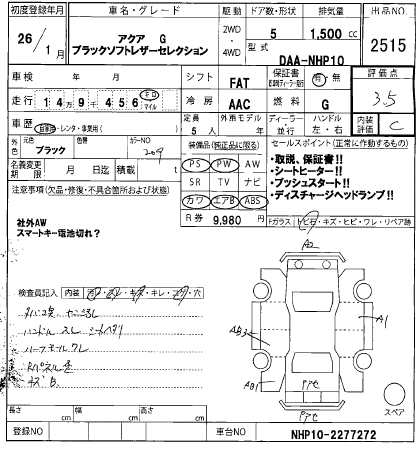 初度登録年月 車名・グレード 駆動 ドア数・形状 排気量 出品NO
26/1月 アクア G ブラックソフトレザーセレクション 2WD・4WD 5 1,500 cc 2515
型式 DAA-NHP10
車検 年 月 シフト FAT 保証書 有・無 評価点 3.5
走行 149456 km マイル 冷房 AAC 燃料 G 内装評価 C
車歴 自家用・レンタ・事業用( ) 定員 5人 外車モデル 年 ディーラー・並行 ハンドル 左・右
外色 元色 ブラック 色替 カラーNO 209
装備品(純正品に限る) セールスポイント(正常に作動するもの)
名義変更期限 月 日迄 積載量 t
PS PW AW
SR TV ナビ
カワ エアB ABS
R券 9,980円
・取説、保証書!!
・シートヒーター!!
・プッシュスタート!!
・ディスチャージヘッドランプ!!
注意事項(欠品・修復・不具合箇所および状態)
Fガラス トビ石・キズ・ヒビ・ワレ・リペア跡
社外AW
スマートキー電池切れ?
検査員記入 内装 キレ・穴
タバコ臭
ハンドルスレ
A2
A1
AB3
AB1
アセ
アセ
スペア
長さ cm 幅 cm 高さ cm
登録NO 車台NO NHP10-2277272